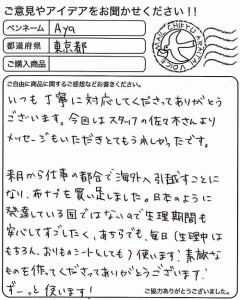 ご意見やアイデアをお聞かせください!!
ペンネーム Aya
都道府県 東京都
ご購入商品
ご自由に商品に関するご感想などお書きください。
いつも丁寧に対応してくださってありがとう
ございます。今回はスタッフの佐々木さんより
メッセージもいただきとてもうれしかったです。
来月から仕事の都合で海外へ引越すことに
なり、布ナプを買い足しました。日本のように
発達している国ではないので生理期間も
安心してすごしたく、あちらでも、毎日(生理中は
もちろん、おりものシートとしても)使います!素敵な
ものを作ってくださってありがとうございます!
ずーっと使います!
ご協力ありがとうございました。